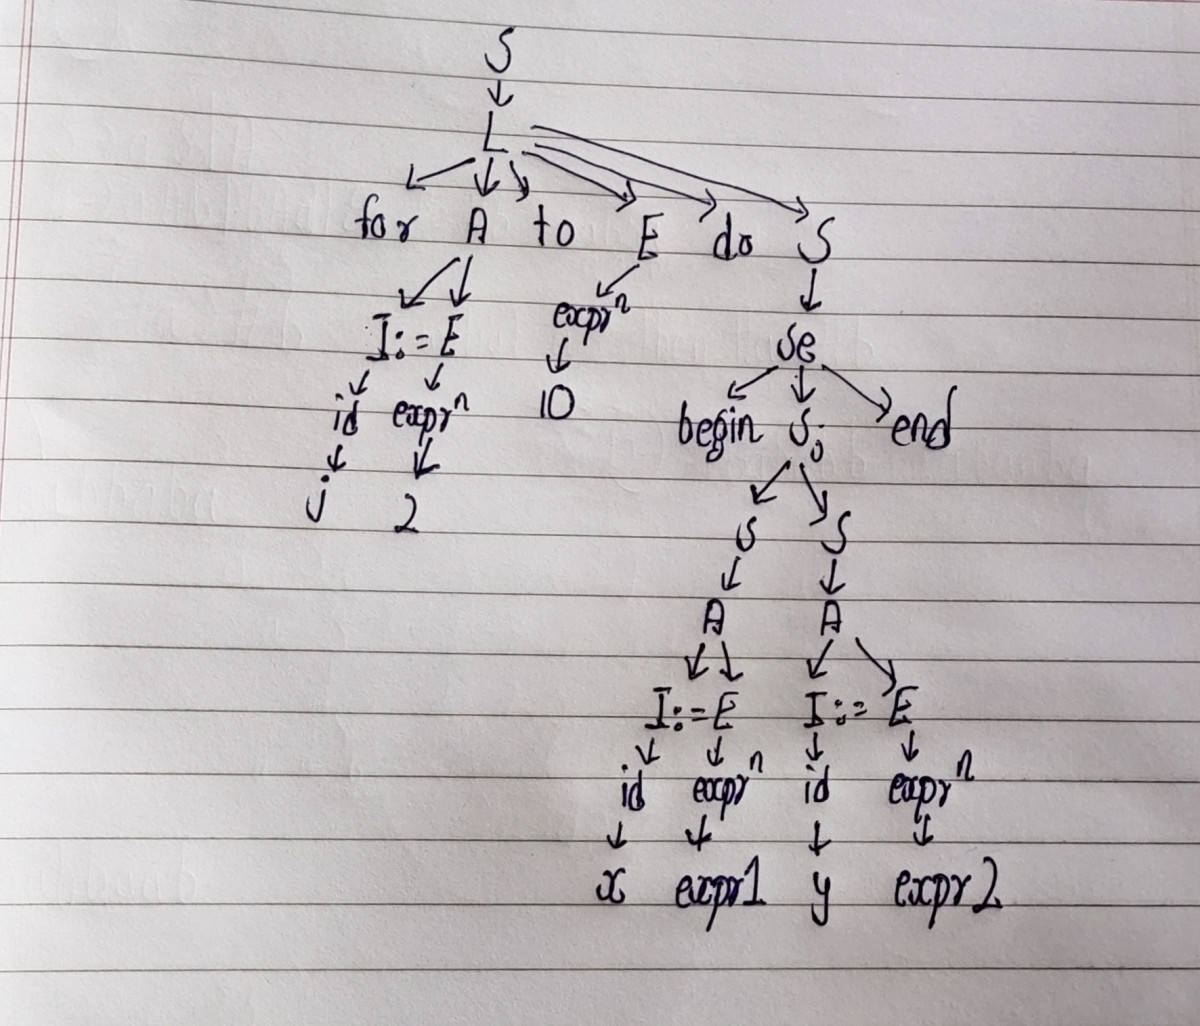 S
L
for A to E do S
I:=E exprⁿ se
id exprⁿ 10 begin S; end
j 2
S S
A A
I:=E I:=E
id exprⁿ id exprⁿ
x expr1 y expr2